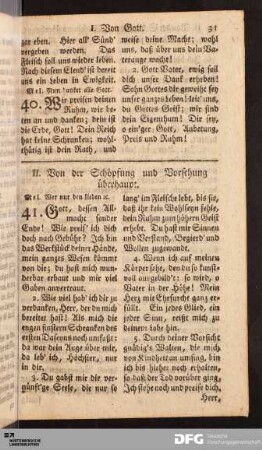 I. Von Gott.
31
zar eben. Hier all' Sünd'
vergeben werden. Das
Fleisch soll uns wieder leben.
Nach diesem Elend ist bereit
uns ein leben in Ewigkeit.
Mel. Nun danket alle Gott.
40. Wir preisen deinen
Ruhm, wir beten
an und danken; dein ist
die Erde, Gott! Dein Reich
hat keine Schranken; wohlthätig
ist dein Rath, und
weise deine Macht; wohl
uns, daß über uns dein Vaterauge
wacht!
2. Gott Vater, ewig soll
dich unser Dank erheben!
Sohn Gottes dir geweiht sey
unser ganzes Leben! leit' uns,
du Gottes Geist; wir sind
dein Eigenthum! Dir sey,
o ein'ger Gott, Anbetung,
Preis und Ruhm!
II. Von der Schöpfung und Vorsehung
überhaupt.
Mel. Wer nur den lieben ꝛc.
41. Gott, dessen Allmacht
sonder
Ende! Wie preis' ich dich
doch nach Gebühr? Ich bin
das Werkstück deiner Hände,
mein ganzes Wesen kömmt
von dir; du hast mich wunderbar
erbaut und mir viel
Gaben anvertraut.
2. Wie viel hab' ich dir zu
verdanken, Herr, der du mich
bereitet hast! Als mich die
engen finstern Schranken des
ersten Daseyns noch umfaßt;
da war dein Auge über mir,
da leb' ich, Höchster, nur
in dir.
3. Du gabst mir die vernünft'ge
Seele, die nur so
lang' im Fleische lebt, bis sie,
daß ihr kein Wohlseyn fehle,
dein Ruhm zum höhern Geist
erhebt. Du hast mir Sinnen
und Verstand, Begierd' und
Wollen zugewandt.
4. Wenn ich auf meinen
Körper sehe, den du so kunstvoll
ausgebild't: so wird, o
Vater in der Höhe! Mein
Herz mit Ehrfurcht ganz erfüllt.
Ein jedes Glied, ein
jeder Sinn, reißt mich zu
deinem lobe hin.
5. Durch deiner Vorsicht
gnädig's Walten, die mich
von Kindheit an umfing, bin
ich bis hieher noch erhalten,
so daß der Tod vorüber ging.
Ich stehe noch und preise dich,
Herr,
DFG
Deutsche
Forschungsgemeinschaft